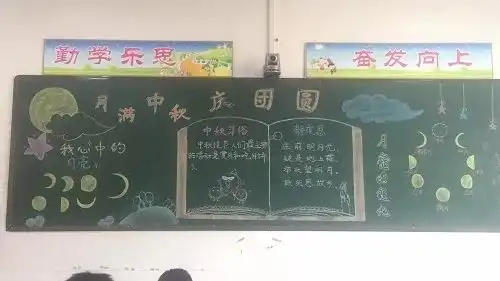 勤学乐思
奋发向上
月满中秋 庆团圆
我心中的
月亮
中秋习俗
中秋佳节人们最主要
的活动是赏月和吃月饼
静夜思
床前明月光，
疑是地上霜。
举头望明月，
低头思故乡。
月亮的变化